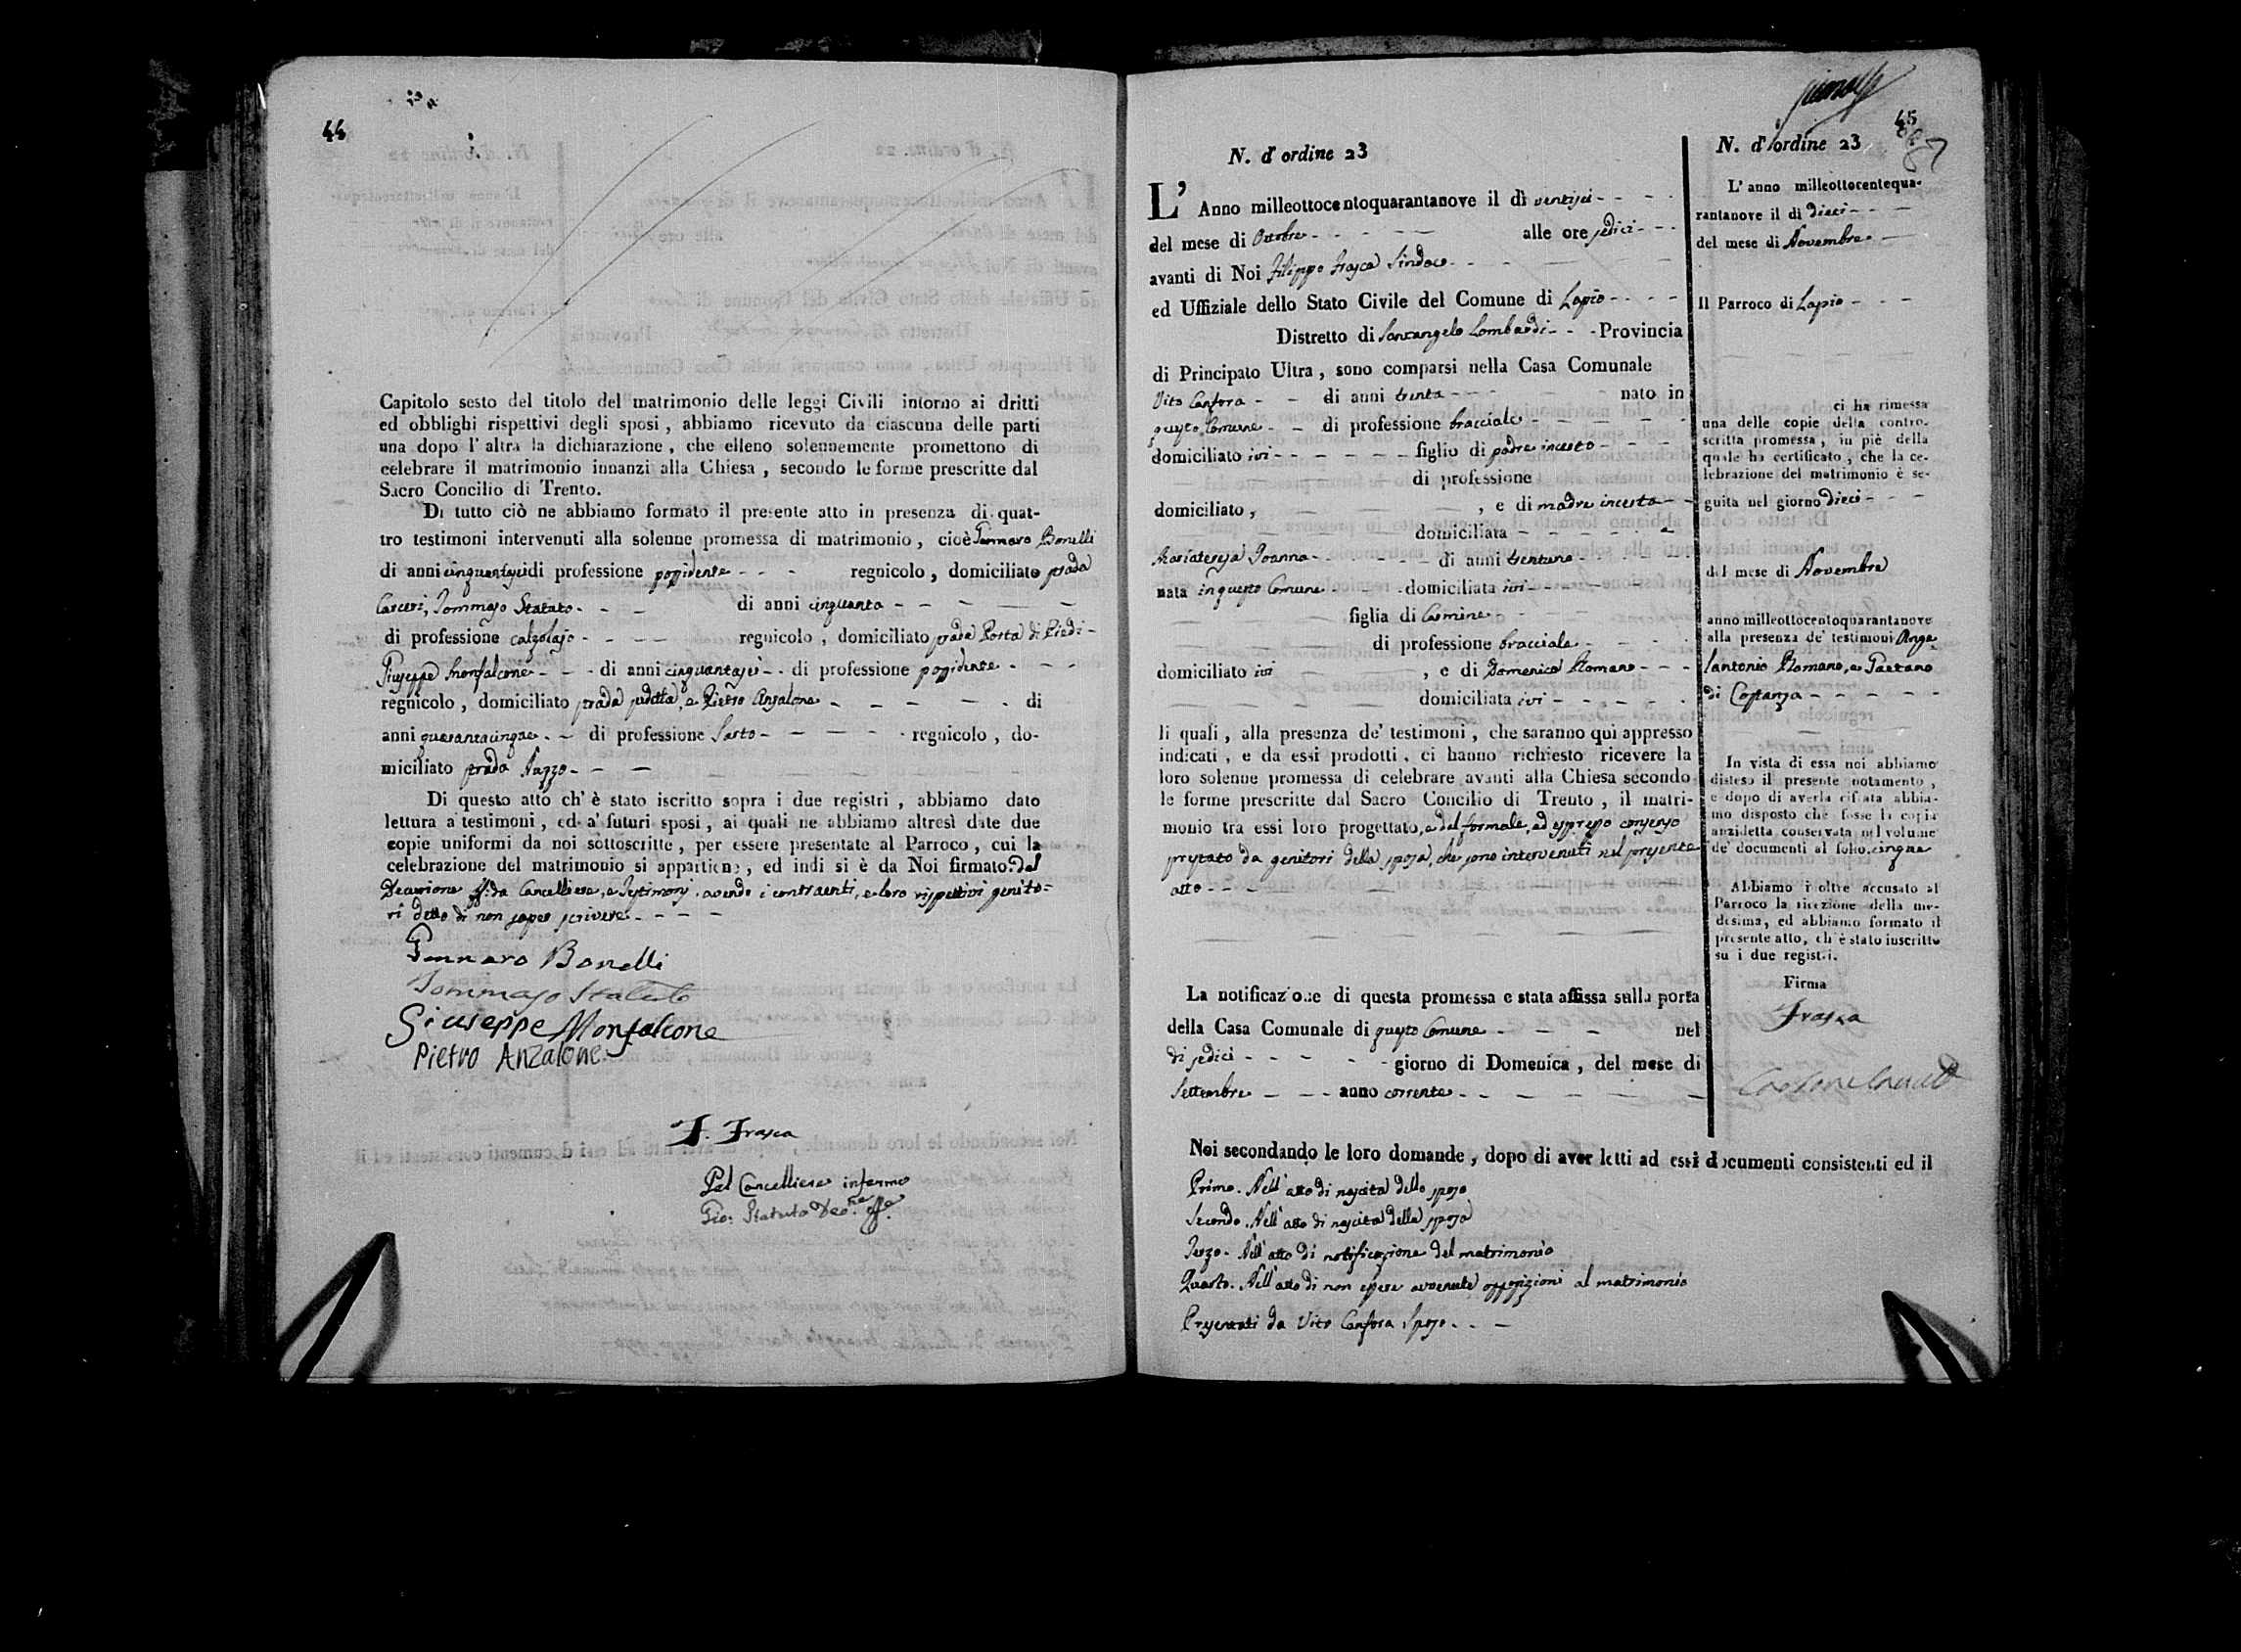 44
Capitolo sesto del titolo del matrimonio delle leggi Civili intorno ai dritti
ed obblighi rispettivi degli sposi, abbiamo ricevuto da ciascuna delle parti
una dopo l'altra la dichiarazione, che elleno solennemente promettono di
celebrare il matrimonio innanzi alla Chiesa, secondo le forme prescritte dal
Sacro Concilio di Trento.
Di tutto ciò ne abbiamo formato il presente atto in presenza di quat-
tro testimoni intervenuti alla solenne promessa di matrimonio, cioè Gennaro Bonelli
di anni cinquantasei di professione possidente regnicolo, domiciliato strada
Carceri, Tommaso Statuto di anni cinquanta
di professione calzolajo regnicolo, domiciliato strada Porta di Piedi
Giuseppe Monfalcone di anni cinquantasei di professione possidente
regnicolo, domiciliato strada sudetta, e Pietro Anzalone di
anni quarantacinque di professione Sarto regnicolo, do-
miciliato strada
Di questo atto ch'è stato iscritto sopra i due registri, abbiamo dato
lettura a' testimoni, ed a' futuri sposi, ai quali ne abbiamo altresì date due
copie uniformi da noi sottoscritte, per essere presentate al Parroco, cui la
celebrazione del matrimonio si appartiene, ed indi si è da Noi firmato, dal
Decurione ff: da Cancelliere, e Testimonj, avendo i contraenti, e loro rispettivi genito=
ri detto di non saper scrivere
Gennaro Bonelli
Tommaso Statuto
Giuseppe Monfalcone
Pietro Anzalone
F. Frasca
Pel Cancelliere infermo
Gio: Statuto
45
N. d'ordine 23
L'Anno milleottocentoquarantanove il dì ventisei
del mese di Ottobre alle ore sedici
avanti di Noi Filippo Frasca Sindaco
ed Uffiziale dello Stato Civile del Comune di Lapio
Distretto di Santangelo Lombardi Provincia
di Principato Ultra, sono comparsi nella Casa Comunale
Vito Canfora di anni trenta nato in
questo Comune di professione bracciale
domiciliato ivi figlio di padre incerto
di professione
domiciliato, , e di madre incerta
domiciliata e
Mariateresa Joanna di anni trentuno
nata in questo Comune domiciliata ivi
figlia di Carmine
di professione bracciale
domiciliato ivi , e di Domenica Romano
domiciliata ivi
li quali, alla presenza de' testimoni, che saranno qui appresso
indicati, e da essi prodotti, ci hanno richiesto ricevere la
loro solenne promessa di celebrare avanti alla Chiesa secondo
le forme prescritte dal Sacro Concilio di Trento, il matri-
monio tra essi loro progettato, e del formale, ed espresso consenso
prestato da genitori della sposa, che sono intervenuti nel presente
atto
La notificazione di questa promessa e stata affissa sulla porta
della Casa Comunale di questo Comune nel
dì sedici giorno di Domenica, del mese di
Settembre anno corrente
Noi secondando le loro domande, dopo di aver letti ad essi i documenti consistenti ed il
Primo. Nell'atto di nascita dello sposo
Secondo. Nell'atto di nascita della sposa
Terzo. Nell'atto di notificazione del matrimonio
Quarto. Nell'atto di non essere avvenute opposizioni al matrimonio
Presentati da Vito Canfora sposo
N. d'ordine 23
L'anno milleottocentoqua-
rantanove il dì dieci
del mese di Novembre
Il Parroco di Lapio
ci ha rimessa
una delle copie della contro-
scritta promessa, in piè della
quale ha certificato, che la ce-
lebrazione del matrimonio è se-
guita nel giorno dieci
del mese di Novembre
anno milleottocentoquarantanove
alla presenza de' testimoni Ange
lantonio Romano, e Gaetano
di Costanza
In vista di essa noi abbiamo
disteso il presente notamento,
e dopo di averla cifrata abbia-
mo disposto che fosse la copia
anzidetta conservata nel volume
de' documenti al folio cinque
Abbiamo inoltre accusato al
Parroco la ricezione della me-
desima, ed abbiamo formato il
presente atto, ch'è stato inscritto
su i due registri.
Firma
Frasca